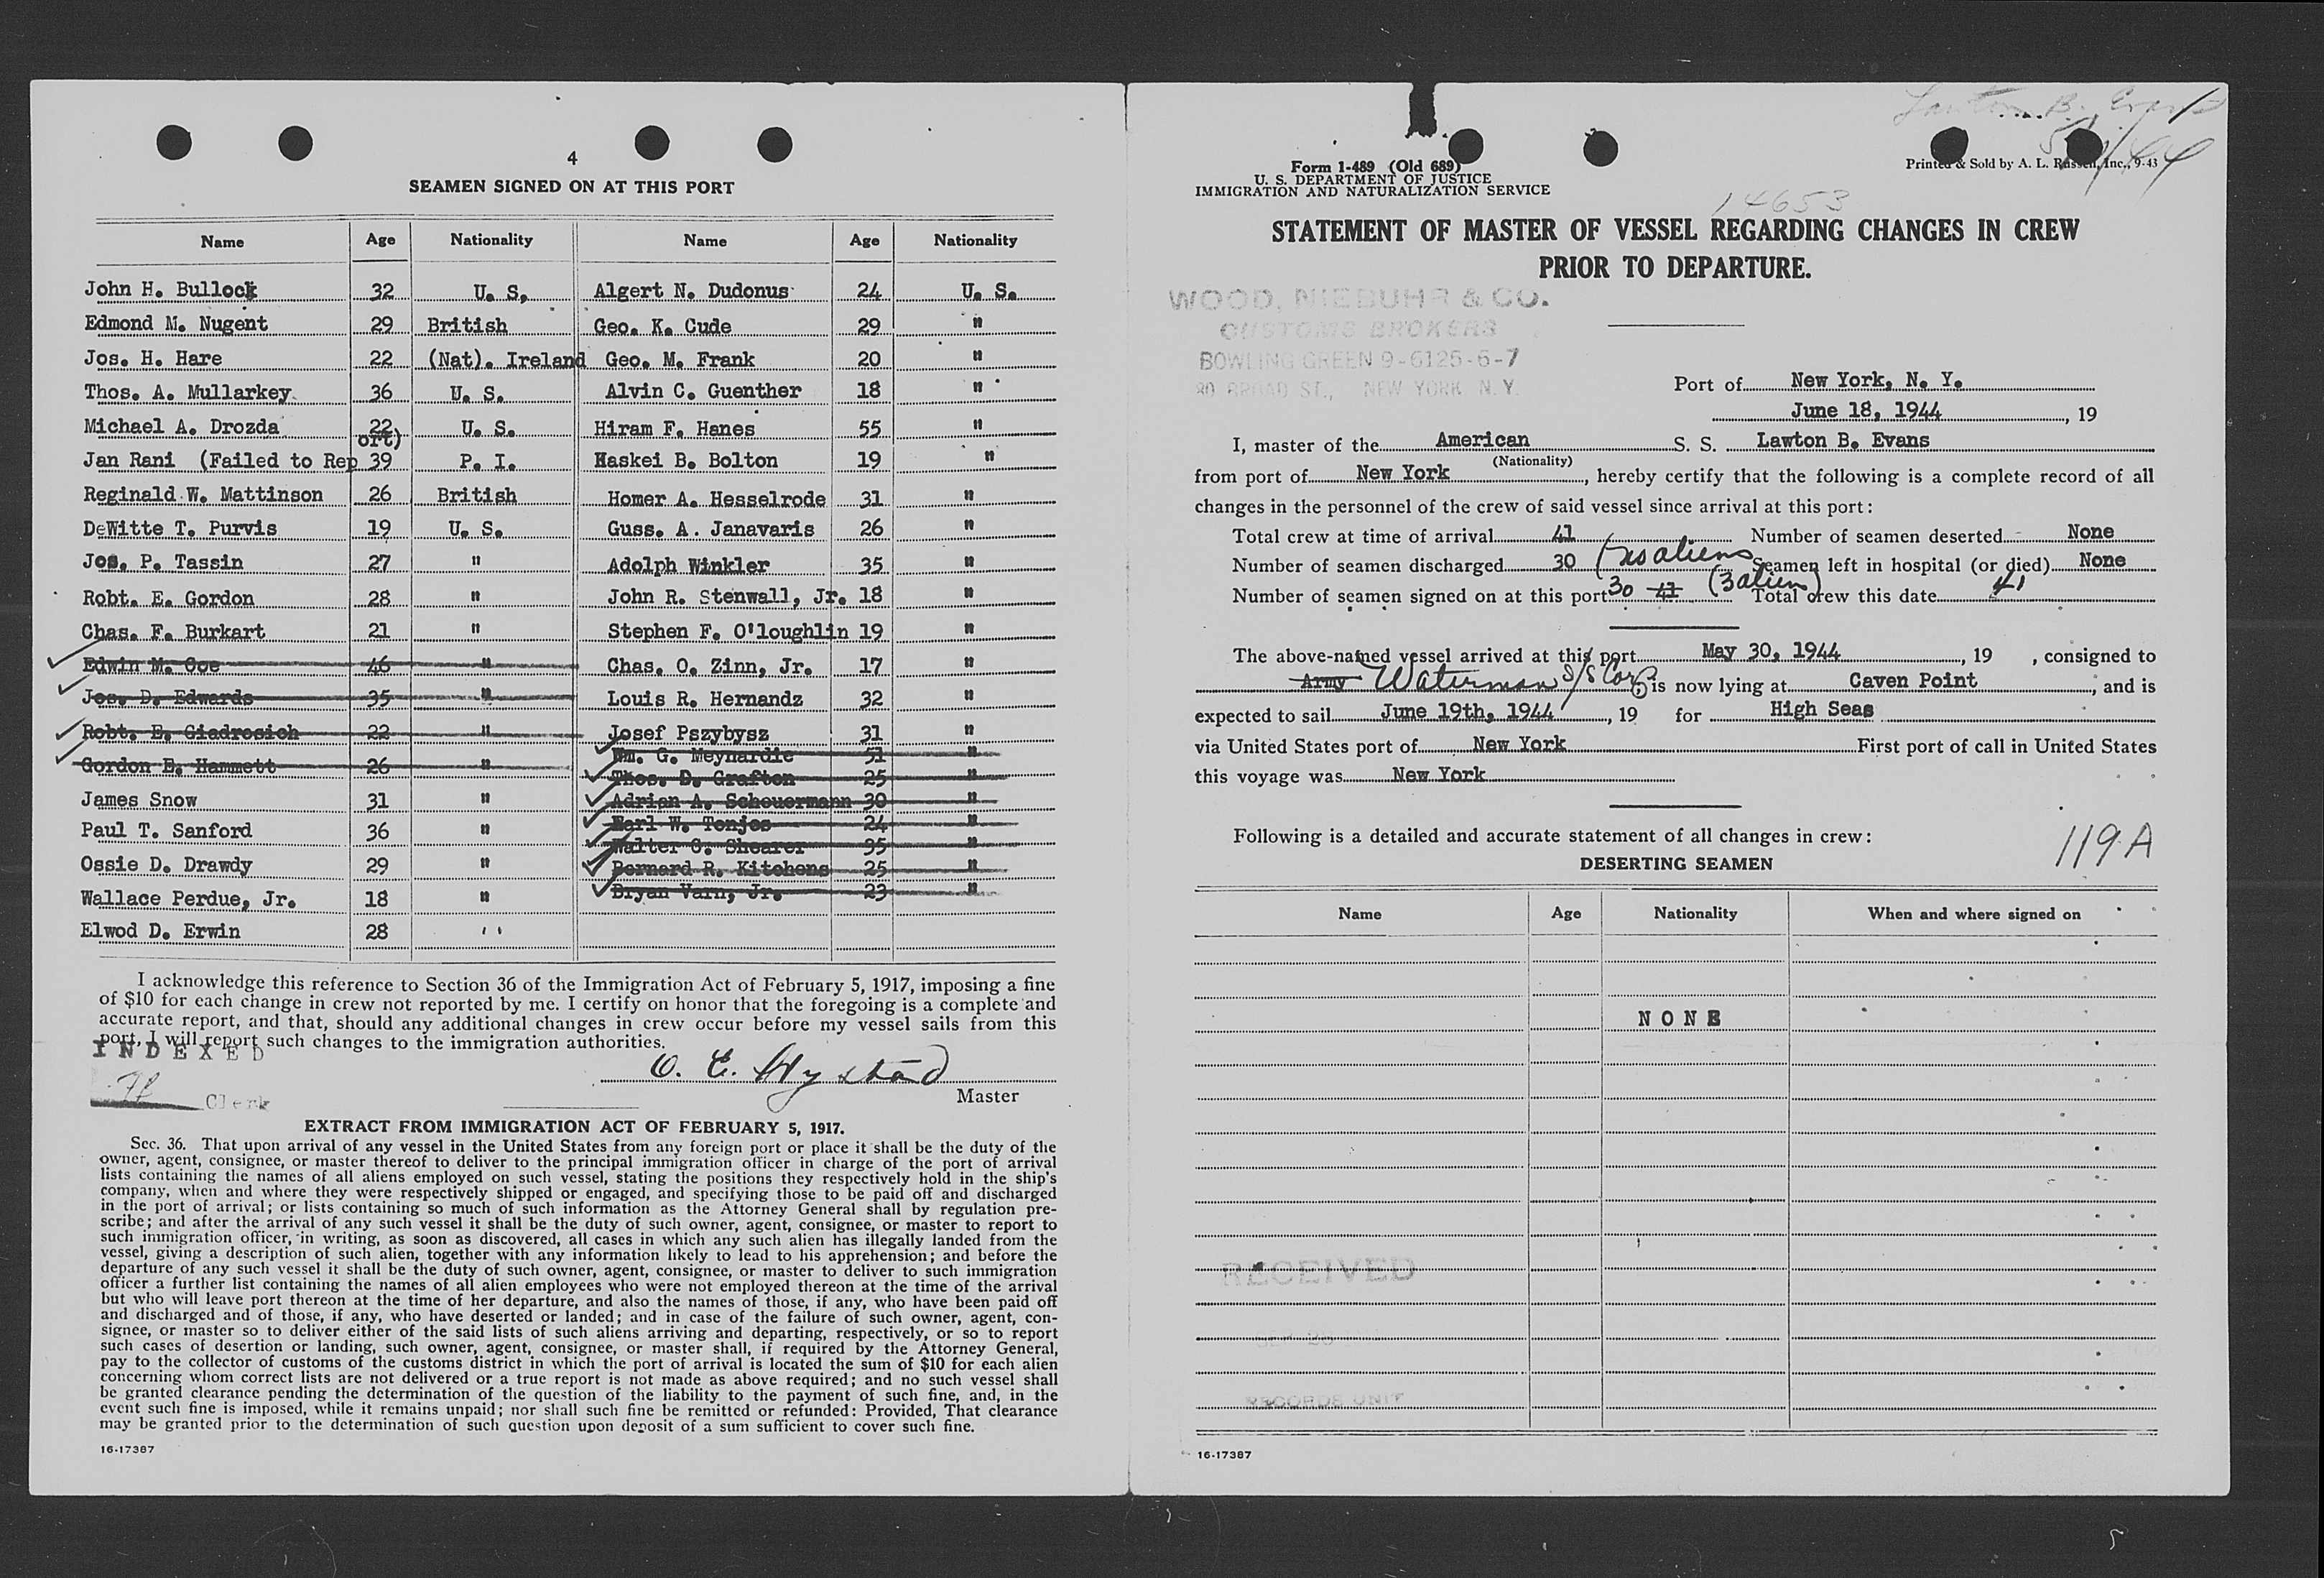 4
SEAMEN SIGNED ON AT THIS PORT
Name Age Nationality Name Age Nationality
John H. Bullock 32 U. S. Algert N. Dudonus 24 U. S.
Edmond M. Nugent 29 British Geo. K. Cude 29 "
Jos. H. Hare 22 (Nat). Ireland Geo. M. Frank 20 "
Thos. A. Mullarkey 36 U. S. Alvin C. Guenther 18 "
Michael A. Drozda 22 U. S. Hiram F. Hanes 55 "
ort)
Jan Rani (Failed to Rep 39 P. I. Haskei B. Bolton 19 "
Reginald W. Mattinson 26 British Homer A. Hesselrode 31 "
DeWitte T. Purvis 19 U. S. Guss. A. Janavaris 26 "
Jos. P. Tassin 27 " Adolph Winkler 35 "
Robt. E. Gordon 28 " John R. Stenwall, Jr. 18 "
Chas. F. Burkart 21 " Stephen F. O'loughlin 19 "
Edwin M. Coe 46 " Chas. O. Zinn, Jr. 17 "
Jos. D. Edwards 35 " Louis R. Hernandz 32 "
Robt. E. Giadrosich 22 " Josef Pszybysz 31 "
Wm. G. Meynardie 51 "
Gordon E. Hammett 26 " Thos. D. Grafton 25 "
James Snow 31 " Adrian A. Scheuermann 30 "
Earl W. Tonjes 24 "
Paul T. Sanford 36 " Walter C. Shearer 35 "
Ossie D. Drawdy 29 " Bernard R. Kitchens 25 "
Wallace Perdue, Jr. 18 " Bryan Varn, Jr. 23 "
Elwod D. Erwin 28 "
I acknowledge this reference to Section 36 of the Immigration Act of February 5, 1917, imposing a fine
of $10 for each change in crew not reported by me. I certify on honor that the foregoing is a complete and
accurate report, and that, should any additional changes in crew occur before my vessel sails from this
port, I will report such changes to the immigration authorities.
INDEXED
Clerk
Master
EXTRACT FROM IMMIGRATION ACT OF FEBRUARY 5, 1917.
Sec. 36. That upon arrival of any vessel in the United States from any foreign port or place it shall be the duty of the
owner, agent, consignee, or master thereof to deliver to the principal immigration officer in charge of the port of arrival
lists containing the names of all aliens employed on such vessel, stating the positions they respectively hold in the ship's
company, when and where they were respectively shipped or engaged, and specifying those to be paid off and discharged
in the port of arrival; or lists containing so much of such information as the Attorney General shall by regulation pre-
scribe; and after the arrival of any such vessel it shall be the duty of such owner, agent, consignee, or master to report to
such immigration officer, in writing, as soon as discovered, all cases in which any such alien has illegally landed from the
vessel, giving a description of such alien, together with any information likely to lead to his apprehension; and before the
departure of any such vessel it shall be the duty of such owner, agent, consignee, or master to deliver to such immigration
officer a further list containing the names of all alien employees who were not employed thereon at the time of the arrival
but who will leave port thereon at the time of her departure, and also the names of those, if any, who have been paid off
and discharged and of those, if any, who have deserted or landed; and in case of the failure of such owner, agent, con-
signee, or master so to deliver either of the said lists of such aliens arriving and departing, respectively, or so to report
such cases of desertion or landing, such owner, agent, consignee, or master shall, if required by the Attorney General,
pay to the collector of customs of the customs district in which the port of arrival is located the sum of $10 for each alien
concerning whom correct lists are not delivered or a true report is not made as above required; and no such vessel shall
be granted clearance pending the determination of the question of the liability to the payment of such fine, and, in the
event such fine is imposed, while it remains unpaid; nor shall such fine be remitted or refunded: Provided, That clearance
may be granted prior to the determination of such question upon deposit of a sum sufficient to cover such fine.
16-17387
Form 1-489 (Old 689)
U. S. DEPARTMENT OF JUSTICE
IMMIGRATION AND NATURALIZATION SERVICE
Printed & Sold by A. L. Russell, Inc., 9-43
14653
STATEMENT OF MASTER OF VESSEL REGARDING CHANGES IN CREW
PRIOR TO DEPARTURE.
WOOD, NIEBUHR & CO.
CUSTOMS BROKERS
BOWLING GREEN 9-6125-6-7
80 BROAD ST., NEW YORK N. Y.
Port of New York, N. Y.
June 18, 1944, 19
I, master of the American S. S. Lawton B. Evans
(Nationality)
from port of New York, hereby certify that the following is a complete record of all
changes in the personnel of the crew of said vessel since arrival at this port:
Total crew at time of arrival 41 Number of seamen deserted None
Number of seamen discharged 30 (no aliens Seamen left in hospital (or died) None
Number of seamen signed on at this port 30 41 (3 aliens) Total crew this date 41
The above-named vessel arrived at this port May 30, 1944, 19 , consigned to
Army Waterman S/S Corp; is now lying at Caven Point, and is
expected to sail June 19th, 1944, 19 for High Seas
via United States port of New York First port of call in United States
this voyage was New York
Following is a detailed and accurate statement of all changes in crew:
119A
DESERTING SEAMEN
Name Age Nationality When and where signed on
NONE
RECEIVED
RECORDS UNIT
16-17387